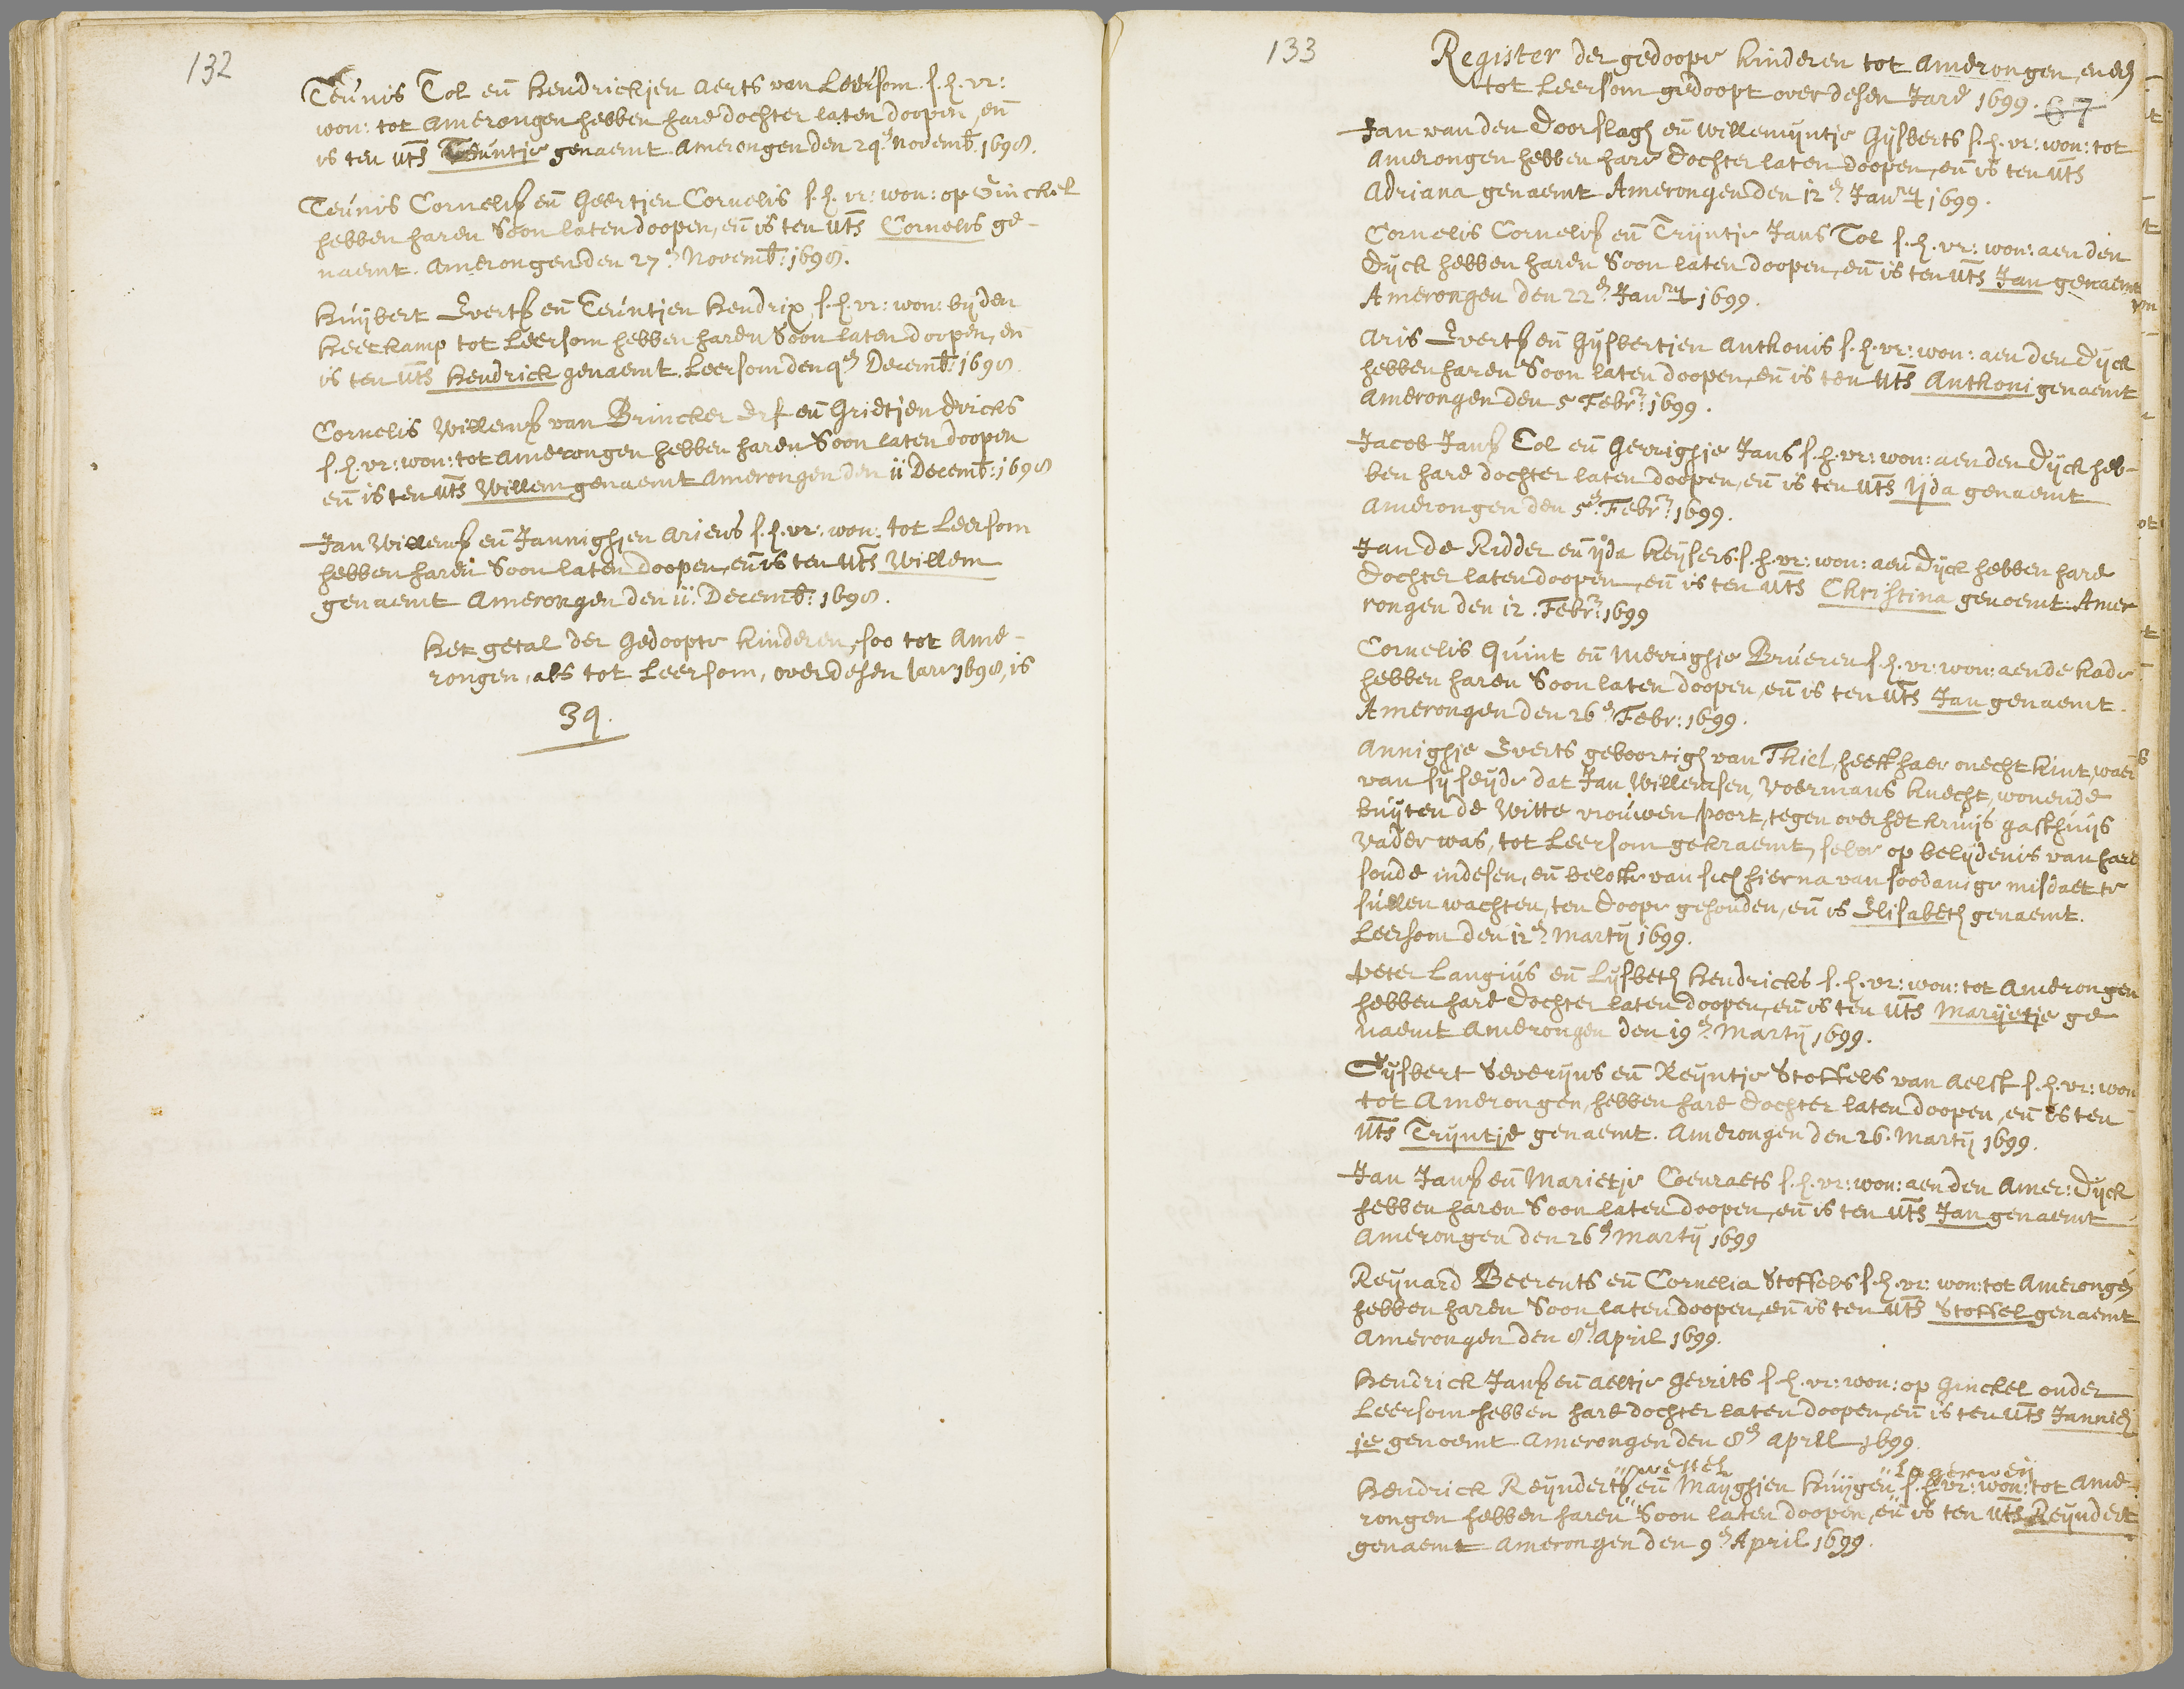 132
Teunis Tol en̄ Hendrickjen Aerts van Leersom. s. h. vr:
won: tot Amerongen hebben hare dochter laten doopen, en̄
is ten uts̄ Teuntje genaemt. Amerongen den 29en Novemb: 1698.
Teunis Cornelisz en̄ Geertjen Cornelis s. h. vr: won: op Ginckel
hebben haren Soon laten doopen, en̄ is ten uts̄ Cornelis ge-
naemt. Amerongen den 27en Novemb: 1698.
Huijbert Evertsz en̄ Teuntjen Hendrix s. h. vr: won: bij den
Heetkamp tot Leersom hebben haren Soon laten doopen, en
is ten uts̄ Hendrick genaemt. Leersom den 9en Decemb: 1698.
Cornelis Willemsz van Brincker Erf en̄ Grietjen Dricks
s. h. vr: won: tot Amerongen hebben haren Soon laten doopen
en̄ is ten uts̄ Willem genaemt Amerongen den 11 Decemb: 1698
Jan Willemsz en̄ Jannighjen Ariens s. h. vr: won: tot Leersom
hebben haren Soon laten doopen, en̄ is ten uts̄ Willem
genaemt Amerongen den 11. Decemb: 1698.
Het getal der Gedoopte kinderen, soo tot Ame-
rongen, als tot Leersom, over desen Jare 1698, is
39.
133
Register der gedoopte kinderen tot Amerongen, ende
tot Leersom gedoopt over desen Jare 1699. 67
Jan van den Doorslagh en̄ Willemijntje Gijsberts s. h. vr: won: tot
Amerongen hebben hare dochter laten doopen, en̄ is ten uts̄
Adriana genaemt Amerongen den 12en Janry 1699.
Cornelis Cornelisz en̄ Trijntje Jans Tol s. h. vr: won: aen den
Dijck hebben haren Soon laten doopen, en̄ is ten uts̄ Jan genaemt
Amerongen den 22en Janry 1699.
Aris Evertsz en̄ Gijsbertjen Anthonis s. h. vr: won: aen den Dijck
hebben haren Soon laten doopen, en̄ is ten uts̄ Anthoni genaemt
Amerongen den 5 Febr: 1699.
Jacob Jansz Tol en̄ Gerrighje Jans s. h. vr: won: aen den Dijck heb-
ben hare dochter laten doopen, en̄ is ten uts̄ Yda genaemt
Amerongen den 5en Febr: 1699.
Jan de Ridder en̄ Yda Keijsers. s. h. vr: won: aen Dijck hebben hare
dochter laten doopen, en̄ is ten uts̄ Christina genoemt. Ame
rongen den 12. Febr: 1699
Cornelis Quint en̄ Merrighje Brueren s. h. vr: won: aen de kade
hebben haren Soon laten doopen, en̄ is ten uts̄ Jan genaemt.
Amerongen den 26en Febr: 1699.
Annighje Everts geboortigh van Thiel, heeft haer onecht kint, waer
van sij seijde dat Jan Willemsen, voermans knecht, wonende
buijten de Witte vrouwen poort, tegen over het kruijs gasthuijs
vader was, tot Leersom gekraemt, selve op belijdenis van hare
sonde in desen, en̄ belofte van sich hier na van soodanige misdaet te
sullen wachten, ten doope gehouden, en̄ is Elisabeth genaemt.
Leersom den 12en Martij 1699.
Peter Langius en̄ Lijsbeth Hendricks s. h. vr: won: tot Amerongen
hebben hare dochter laten doopen, en̄ is ten uts̄ Marijetje ge
naemt Amerongen den 19en Martij 1699.
Gijsbert Severijns en̄ Reijntje Stoffels van Aelst s. h. vr: won
tot Amerongen, hebben hare dochter laten doopen, en̄ is ten
uts̄ Trijntje genaemt. Amerongen den 26. Martij 1699.
Jan Jansz en̄ Marietje Coenraets s. h. vr: won: aen den Amer: Dijck
hebben haren Soon laten doopen, en̄ is ten uts̄ Jan genaemt
Amerongen den 26en Martij 1699
Reijnard Beerents en̄ Cornelia Stoffels s. h. vr: won: tot Amerongen
hebben haren Soon laten doopen, en̄ is ten uts̄ Stoffel genaemt
Amerongen den 8en April 1699.
Hendrick Jansz en̄ Aeltje Gerrits s. h. vr: won: op Ginckel onder
Leersom hebben hare dochter laten doopen, en̄ is ten uts̄ Jannich
je genoemt Amerongen den 8en April 1699.
"Lagerweij
Hendrick Reijndertsz en̄ Maijghjen Huijgen s. h. vr: won: tot Ame-
rongen hebben haren Soon laten doopen, en̄ is ten uts̄ Reijndert
genaemt Amerongen den 9en April 1699.